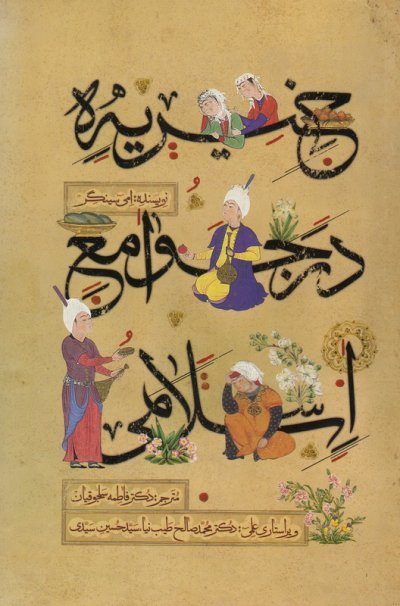 خیریه
نویسنده: امی سینگر
در جوامع
اسلامی
مترجم: دکتر فاطمه سلجوقیان
ویراستاری علمی: دکتر محمدصالح طیب نیا، سیدحسین سیدی